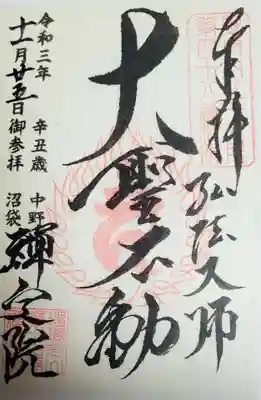 奉拝 弘法大師
大聖不動
令和三年 辛丑歳
十一月廿五日御参拝
中野
沼袋
禪定院